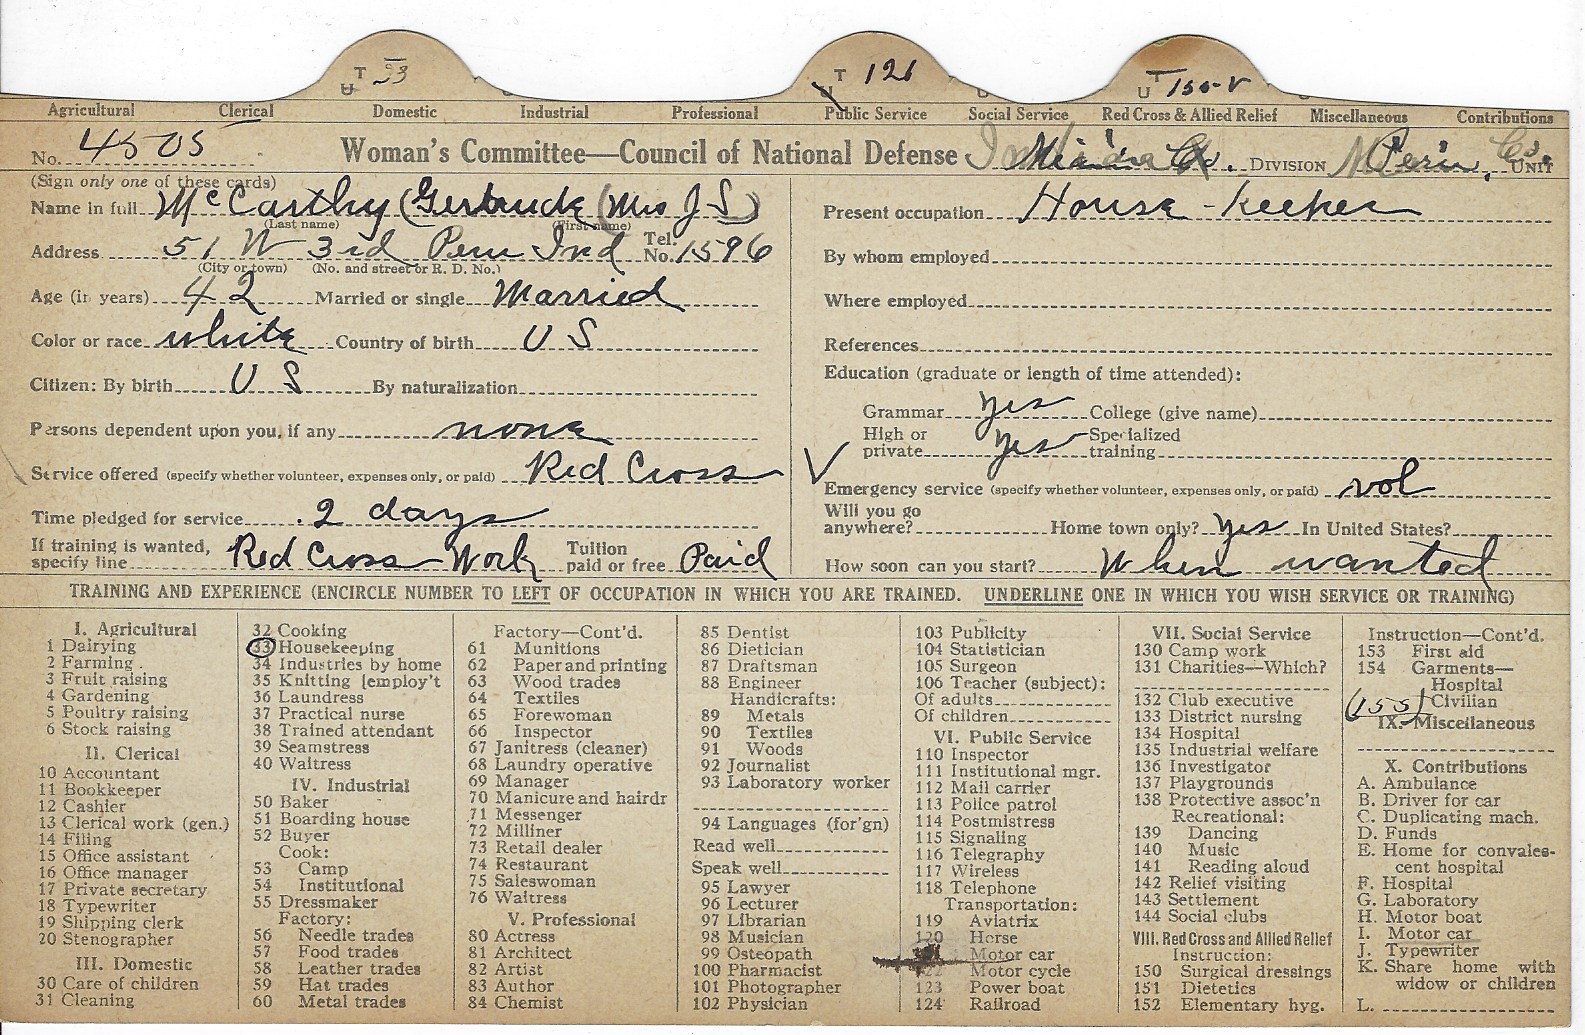 T 33
U
T 121
U
T 155-V
U
Agricultural Clerical Domestic Industrial Professional Public Service Social Service Red Cross & Allied Relief Miscellaneous Contributions
No. 4505 Woman's Committee—Council of National Defense Indiana DIVISION Peru, Co. UNIT
(Sign only one of these cards)
Name in full McCarthy (Gertrude (Mrs J S)
(Last name) (First name)
Address 51 W 3rd Peru Ind Tel. No. 1596
(City or town) (No. and street or R. D. No.)
Age (in years) 42 Married or single Married
Color or race white Country of birth U S
Citizen: By birth U S By naturalization
Persons dependent upon you, if any none
Service offered (specify whether volunteer, expenses only, or paid) Red Cross
Time pledged for service 2 days
If training is wanted, specify line Red Cross Work Tuition paid or free Paid
Present occupation House-keeper
By whom employed
Where employed
References
Education (graduate or length of time attended):
Grammar yes College (give name)
High or private yes Specialized training
Emergency service (specify whether volunteer, expenses only, or paid) vol
Will you go anywhere? Home town only? yes In United States?
How soon can you start? When wanted
TRAINING AND EXPERIENCE (ENCIRCLE NUMBER TO LEFT OF OCCUPATION IN WHICH YOU ARE TRAINED. UNDERLINE ONE IN WHICH YOU WISH SERVICE OR TRAINING)
I. Agricultural
1 Dairying
2 Farming
3 Fruit raising
4 Gardening
5 Poultry raising
6 Stock raising
II. Clerical
10 Accountant
11 Bookkeeper
12 Cashier
13 Clerical work (gen.)
14 Filing
15 Office assistant
16 Office manager
17 Private secretary
18 Typewriter
19 Shipping clerk
20 Stenographer
III. Domestic
30 Care of children
31 Cleaning
32 Cooking
33 Housekeeping
34 Industries by home
35 Knitting [employ't
36 Laundress
37 Practical nurse
38 Trained attendant
39 Seamstress
40 Waitress
IV. Industrial
50 Baker
51 Boarding house
52 Buyer
Cook:
53 Camp
54 Institutional
55 Dressmaker
Factory:
56 Needle trades
57 Food trades
58 Leather trades
59 Hat trades
60 Metal trades
Factory—Cont'd.
61 Munitions
62 Paper and printing
63 Wood trades
64 Textiles
65 Forewoman
66 Inspector
67 Janitress (cleaner)
68 Laundry operative
69 Manager
70 Manicure and hairdr
71 Messenger
72 Milliner
73 Retail dealer
74 Restaurant
75 Saleswoman
76 Waitress
V. Professional
80 Actress
81 Architect
82 Artist
83 Author
84 Chemist
85 Dentist
86 Dietician
87 Draftsman
88 Engineer
Handicrafts:
89 Metals
90 Textiles
91 Woods
92 Journalist
93 Laboratory worker
94 Languages (for'gn)
Read well
Speak well
95 Lawyer
96 Lecturer
97 Librarian
98 Musician
99 Osteopath
100 Pharmacist
101 Photographer
102 Physician
103 Publicity
104 Statistician
105 Surgeon
106 Teacher (subject):
Of adults
Of children
VI. Public Service
110 Inspector
111 Institutional mgr.
112 Mail carrier
113 Police patrol
114 Postmistress
115 Signaling
116 Telegraphy
117 Wireless
118 Telephone
Transportation:
119 Aviatrix
120 Horse
Motor car
122 Motor cycle
123 Power boat
124 Railroad
VII. Social Service
130 Camp work
131 Charities—Which?
132 Club executive
133 District nursing
134 Hospital
135 Industrial welfare
136 Investigator
137 Playgrounds
138 Protective assoc'n
Recreational:
139 Dancing
140 Music
141 Reading aloud
142 Relief visiting
143 Settlement
144 Social clubs
VIII. Red Cross and Allied Relief
Instruction:
150 Surgical dressings
151 Dietetics
152 Elementary hyg.
Instruction—Cont'd.
153 First aid
154 Garments—
Hospital
(155) Civilian
IX. Miscellaneous
X. Contributions
A. Ambulance
B. Driver for car
C. Duplicating mach.
D. Funds
E. Home for convales-
cent hospital
F. Hospital
G. Laboratory
H. Motor boat
I. Motor car
J. Typewriter
K. Share home with
widow or children
L.